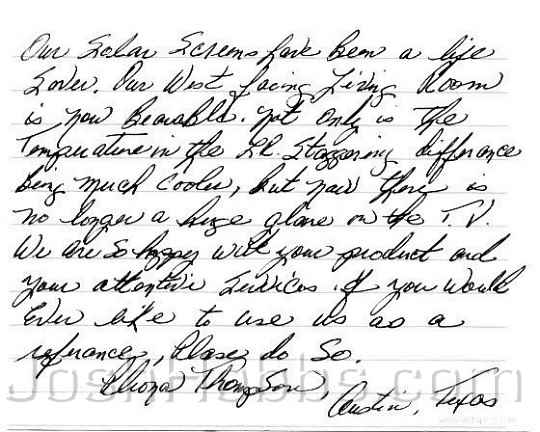 Our Solar Screens have been a life
Saver. Our West facing Living Room
is now Bearable. Not only is the
Temperature in the LR. Staggering differance
being much Cooler, but now there is
no longer a huge glare on the T.V.
We are so happy with your product and
your attentive Services. If you Would
Ever like to use us as a
referance, Please do So.
Thompson,
Austin, Texas
JoshHabbs.com